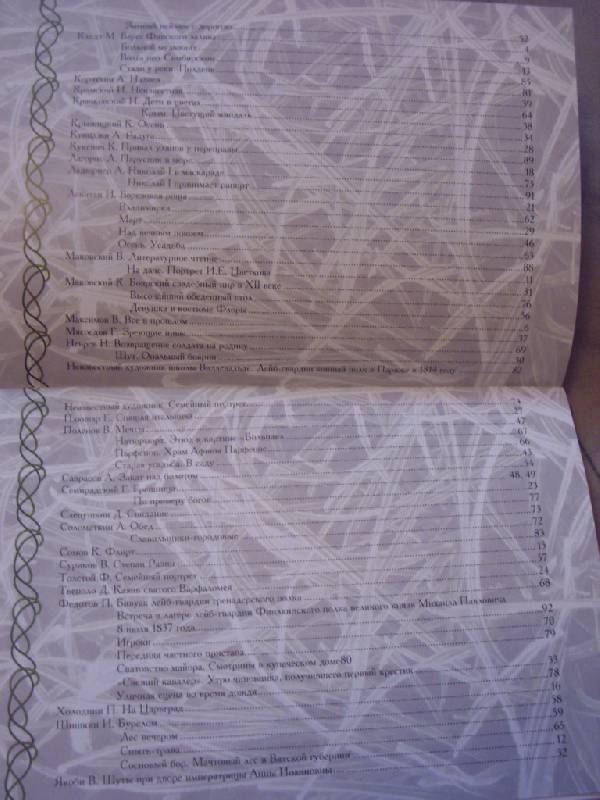 Зимний пейзаж с дорогой
Клевер М. Берег Финского залива 52
Большой музыкант 4
Волга под Симбирском 9
Стадо у реки. Полдень 13
Корзухин А. 85
Крамской И. Неизвестная 81
Крачковский И. Дети и цветы 39
Крым. Цветущий миндаль 64
Крыжицкий К. Осень 38
Куинджи А. Радуга 34
Привал уланов у переправы 28
Лагорио Л. Парусник в море 89
Ладюрнер А. Николай I в маскараде 18
Николай I принимает рапорт 75
Левитан И. Березовая роща 91
Владимирка 21
Март 62
Над вечным покоем 29
Осень. Усадьба 46
Маковский В. Литературное чтение 63
На даче. Портрет И.Е. Цветкова 88
Маковский К. Боярский свадебный пир в XII веке 11
Высочайший обеденный стол 31
Девушка в костюме Флоры 76
Максимов В. Все в прошлом 56
Мясоедов Г. Зреющие нивы 6
Неврев Н. Возвращение солдата на родину 37
Шут. Опальный боярин 69
Неизвестный художник школы Лейб-гвардии конный полк в Париже в 1814 году 82
Неизвестный художник. Семейный портрет 74
Плюшар Е. Спящая 27
Поленов В. Мечты 47
Этюд к картине «Больная» 67
Парфенон. Храм Афины Парфенос 66
Старая усадьба. В саду 43
Саврасов А. Закат над болотом
Семирадский Г. 48, 49
По примеру богов 23
Слепушкин Д. Свидание 77
Соломаткин А. Обед 73
Славильщики-городовые 72
Сомов К. Флирт 83
Суриков В. Степан Разин 15
Толстой Ф. Семейный портрет 57
Д. Казнь святого Варфоломея 24
Федотов П. Бивуак лейб-гвардии гренадерского полка 68
Встреча в лагере лейб-гвардии Финляндского полка великого князя Михаила Павловича
8 июля 1837 года 92
Игроки 70
Передняя частного пристава 79
Сватовство майора. Смотрины в купеческом доме80
«Свежий кавалер». Утро чиновника, получившего первый крестик 33
Уличная сцена во время дождя 78
Холодный П. На Царьград 16
Шишкин И. Бурелом 58
Лес вечером 59
Сныть-трава 65
Сосновый бор. Мачтовый лес в Вятской губернии 12
Якоби В. Шуты при дворе императрицы Анны Иоанновны 32